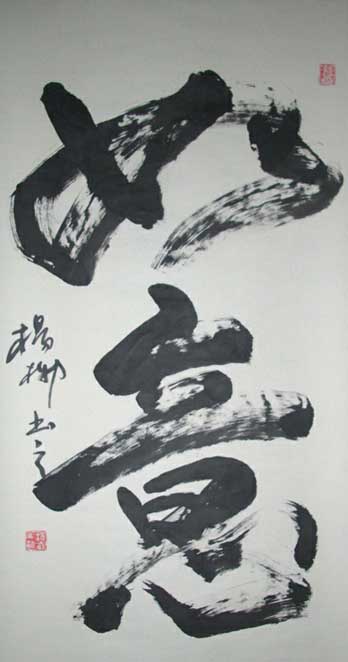 如意
楊柳书之